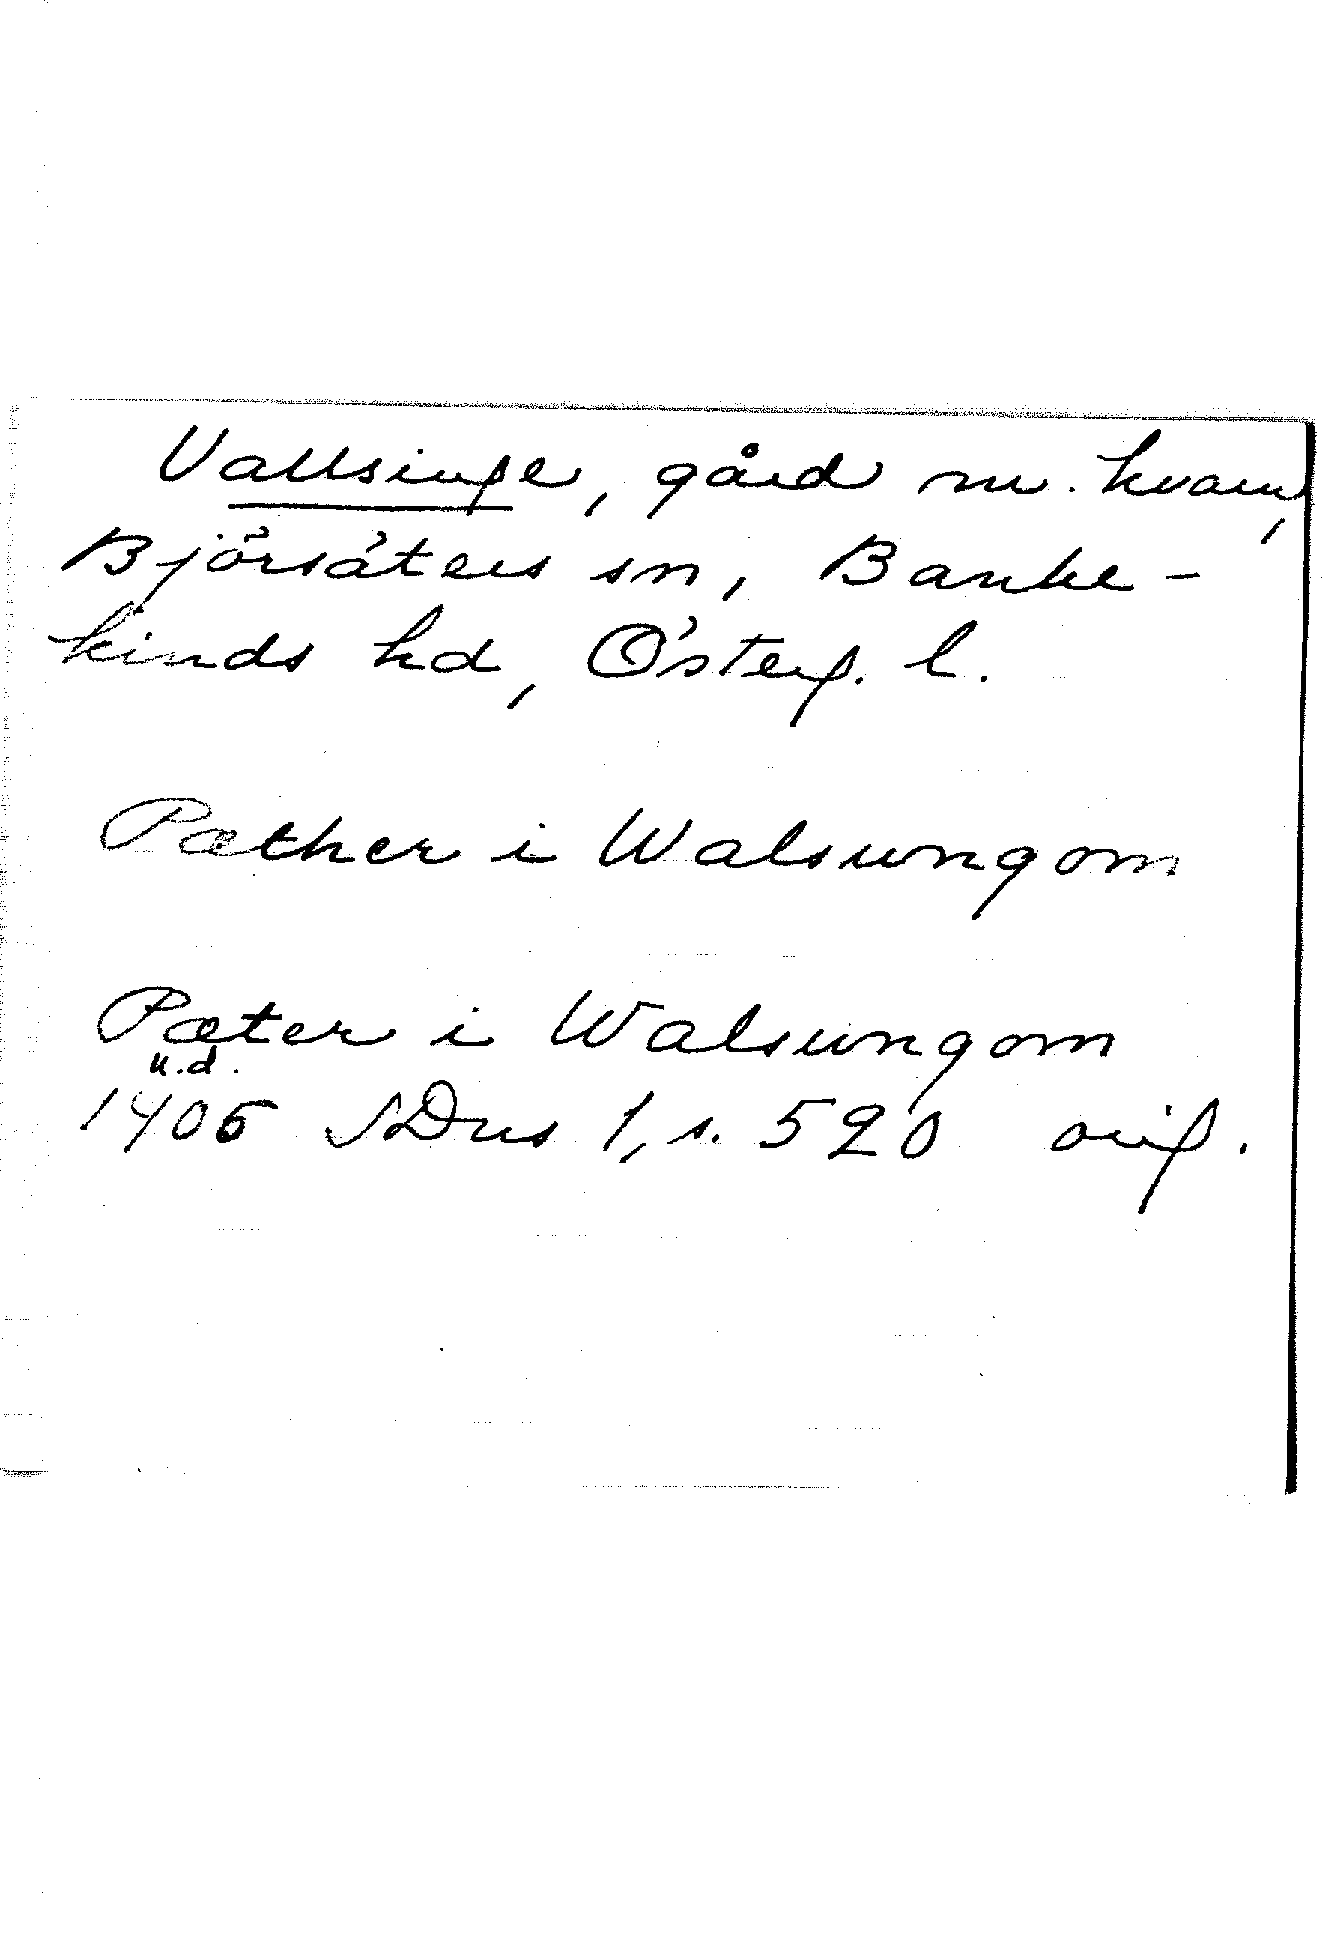 Vallsinge, gård m. kvarn,
Björsäters sn, Banke-
kinds hd, Österg. l.
Pæther i Walsungom
Pæter i Walsungom
u.d.
1405 SDns 1, s. 520 orig.